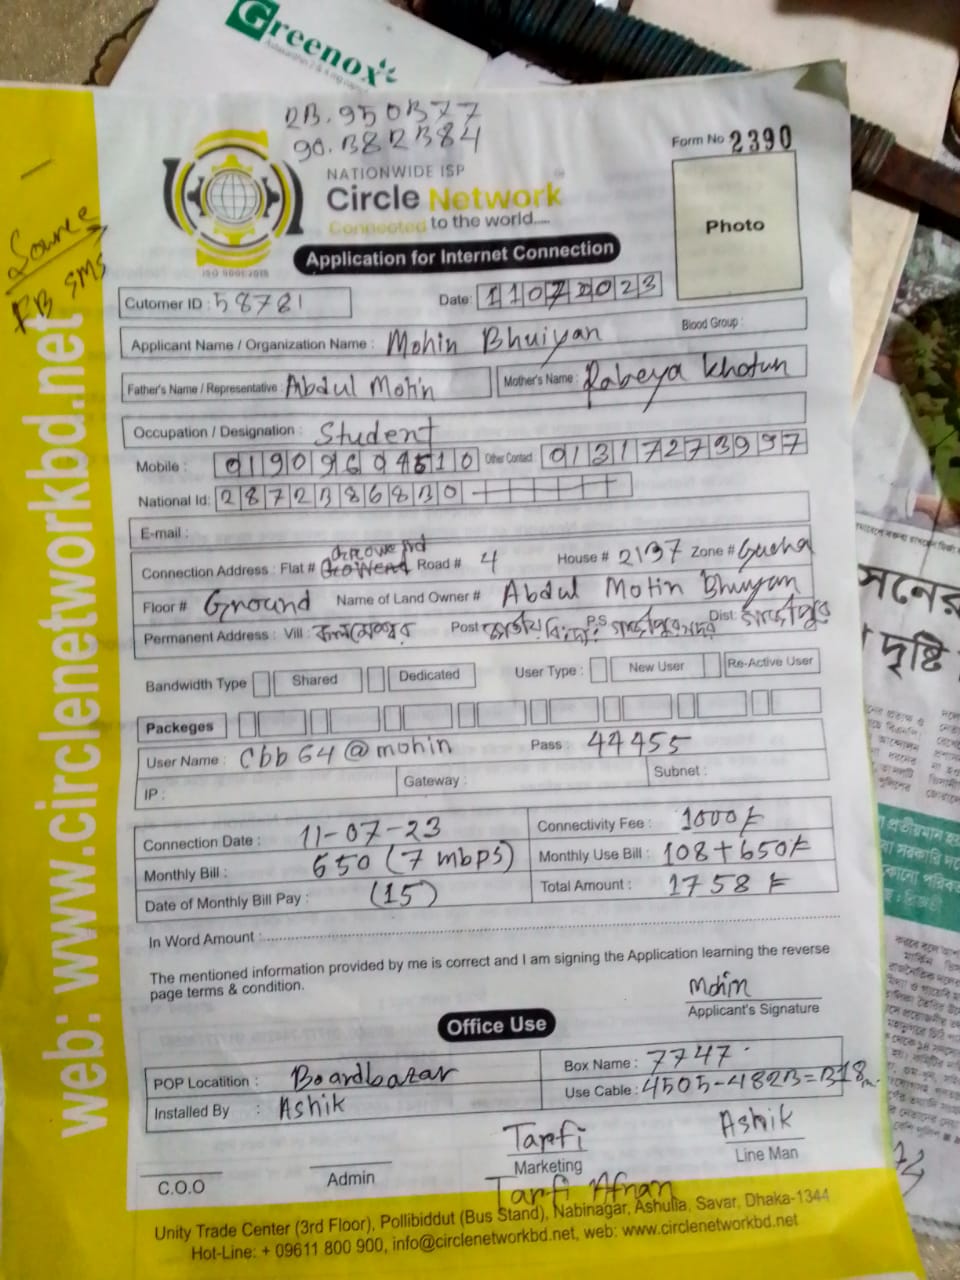 Greenox
23.950377
90.382384
Form No 2390
NATIONWIDE ISP
Circle Network
Connected to the world....
ISO 9001:2015
Photo
Application for Internet Connection
Source
FB SMS
web: www.circlenetworkbd.net
Cutomer ID : 58781
Date: 11072023
Applicant Name / Organization Name : Mohin Bhuiyan
Blood Group :
Father's Name / Representative : Abdul Motin
Mother's Name : Rabeya Khatun
Occupation / Designation : Student
Mobile : 01909604510 Other Contact 01317273997
National Id: 2872386830
E-mail :
Connection Address : Flat # Road # 4 House # 2137 Zone #
Floor # Ground Name of Land Owner # Abdul Motin Bhuiyan
Permanent Address : Vill : কলমেশ্বর Post P.S গাজীপুর সদর Dist: গাজীপুর
Bandwidth Type Shared Dedicated User Type : New User Re-Active User
Packeges
User Name : Cbb64@mohin Pass : 44455
IP : Gateway : Subnet :
Connection Date : 11-07-23 Connectivity Fee : 1000/-
Monthly Bill : 650 (7 mbps) Monthly Use Bill : 108+650/-
Date of Monthly Bill Pay : (15) Total Amount : 1758/-
In Word Amount :
The mentioned information provided by me is correct and I am signing the Application learning the reverse
page terms & condition.
Mohin
Applicant's Signature
Office Use
POP Locatition : Boardbazar Box Name : 7747
Installed By : Ashik Use Cable : 4505-4823=318m
Tarfi Ashik
C.O.O Admin Marketing Line Man
Tarfi Afnan
Unity Trade Center (3rd Floor), Pollibiddut (Bus Stand), Nabinagar, Ashulia, Savar, Dhaka-1344
Hot-Line: + 09611 800 900, info@circlenetworkbd.net, web: www.circlenetworkbd.net
দৃষ্টি